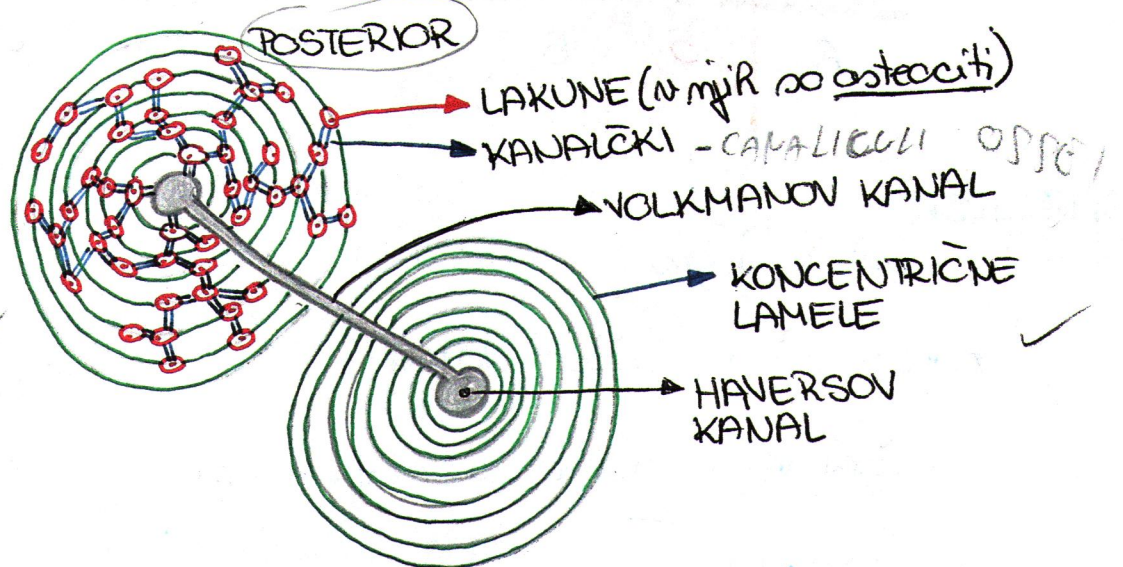 POSTERIOR
LAKUNE (v njih so osteociti)
KANALČKI - CANALICULI OSSEI
VOLKMANOV KANAL
KONCENTRIČNE
LAMELE
HAVERSOV
KANAL